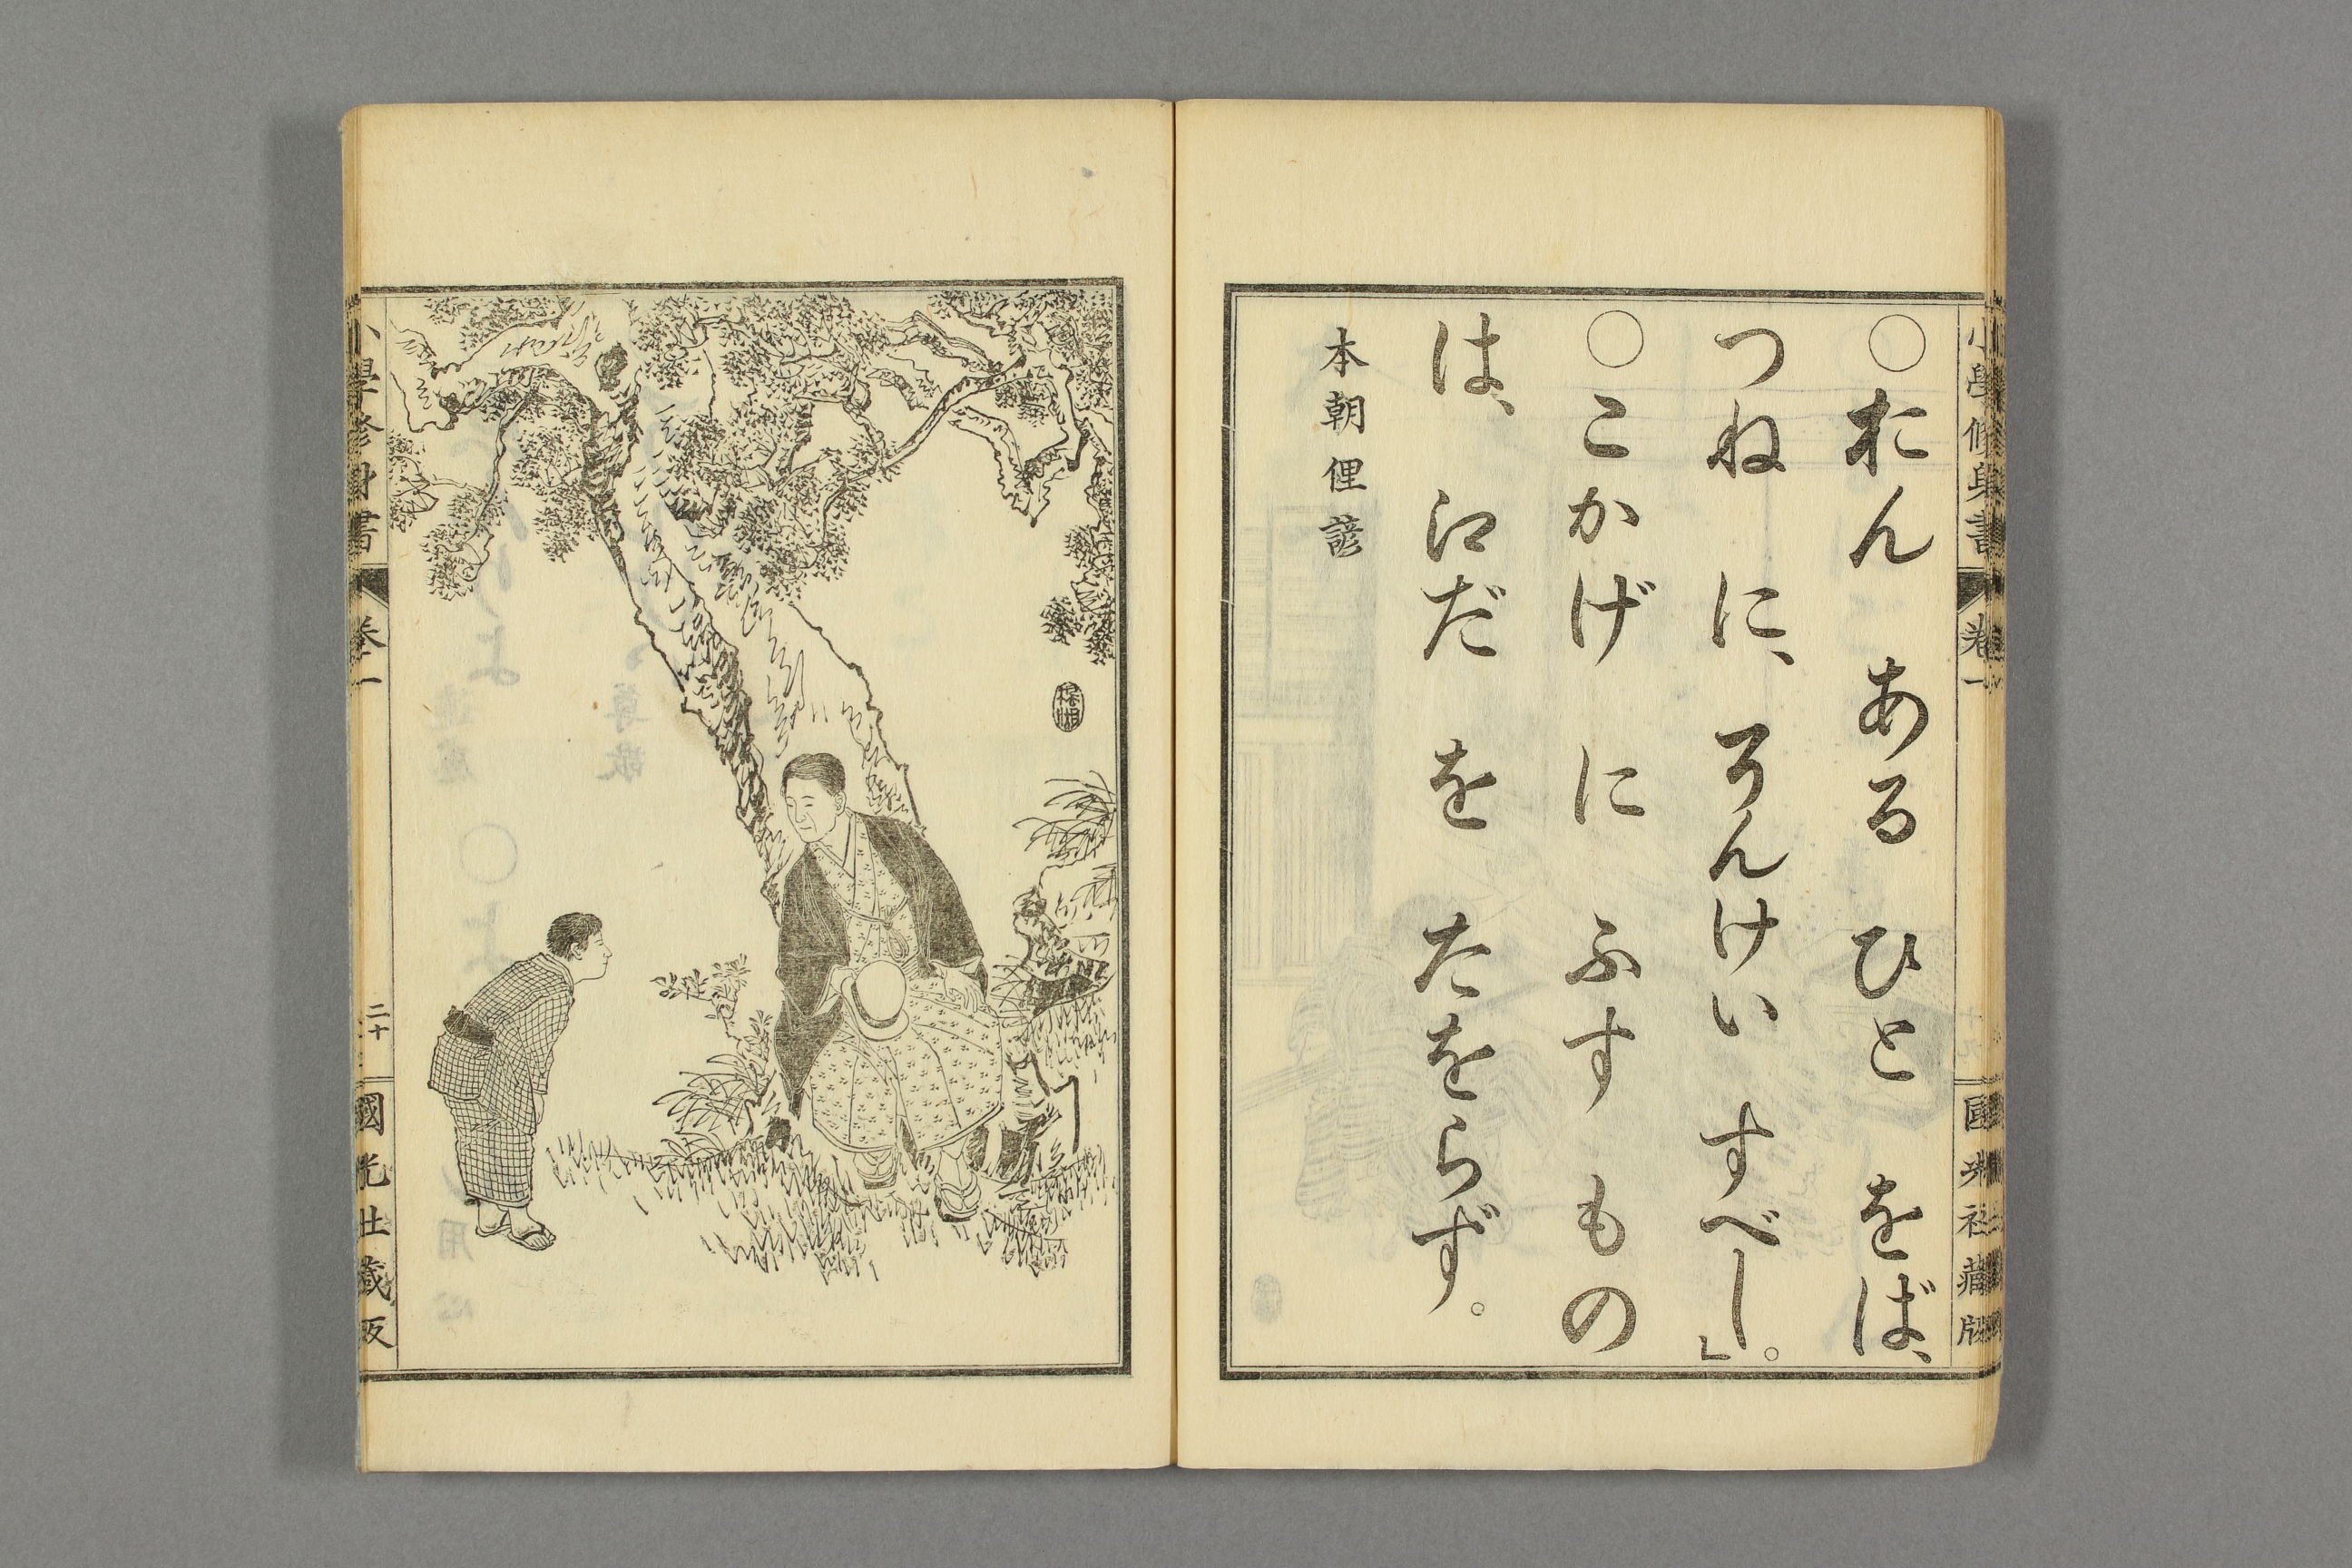 小學修身書 卷一 國光社藏版
○おん ある ひと をば、
つね に、そんけい すべし。」
○こかげ に ふす もの
は、えだ を たをらず。
本朝俚諺
小學修身書 卷一 二十 國光社藏版